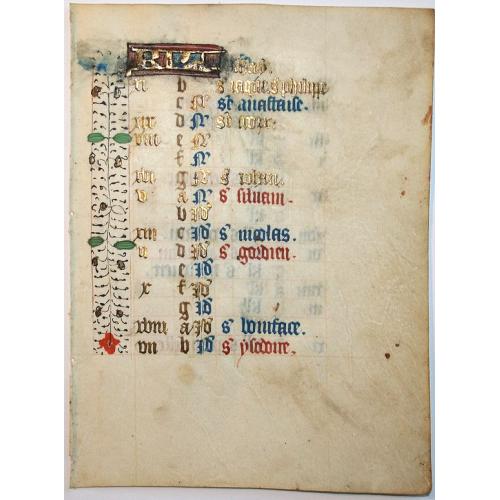 KL
xi b s iaque s phelippe
c N st anastaise.
xix d N st croix
viii e N
f N
xvi g N s iehan.
v a N s siluain.
b Id
xiii c Id s nicolas.
ii d Id s gordien.
e Id
x f Id
g Id
xviii a Id s boniface.
vii b Id s ysedoire.